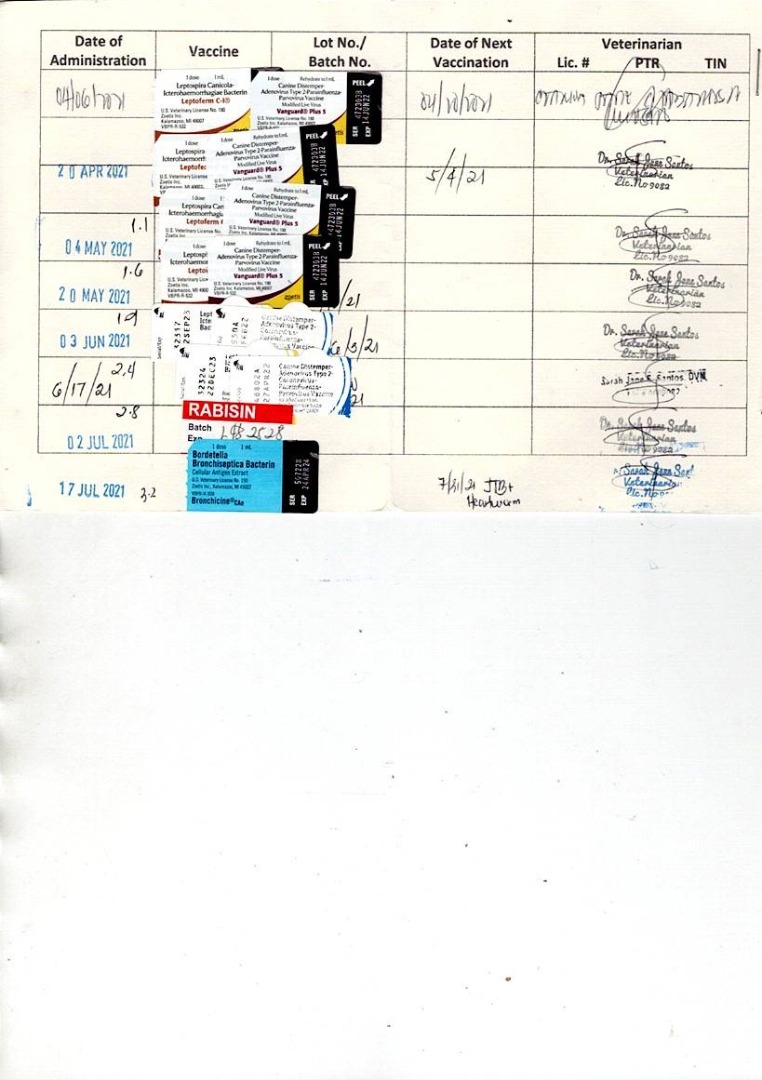 Date of Administration
Vaccine
Lot No./ Batch No.
Date of Next Vaccination
Veterinarian
Lic. # PTR TIN
04/06/2021
1 dose 1 mL
Leptospira Canicola-
Icterohaemorrhagiae Bacterin
Leptoferm C-I®
U.S. Veterinary License No. 190
Zoetis Inc.
Kalamazoo, MI 49007
1 dose Rehydrate to 1 mL
Canine Distemper-
Adenovirus Type 2-Parainfluenza-
Parvovirus Vaccine
Modified Live Virus
Vanguard® Plus 5
U.S. Veterinary License No. 190
Zoetis Inc.
Kalamazoo, MI 49007
PEEL
SER 472303B
EXP 14JUN22
20 APR 2021
Leptospira
Icterohaemorrh
Leptofer
Canine Distemper-
Adenovirus Type 2-Parainfluenza-
Parvovirus Vaccine
Modified Live Virus
Vanguard® Plus 5
PEEL
472303B
14JUN22
5/4/21
Dr. Sarah Jane Santos
Veterinarian
Lic. No 9082
1.1
04 MAY 2021
1 dose
Leptospira Can
Icterohaemorrhagi
Leptoferm
1 dose Rehydrate to 1 mL
Canine Distemper-
Adenovirus Type 2-Parainfluenza-
Parvovirus Vaccine
Modified Live Virus
Vanguard® Plus 5
PEEL
472303B
14JUN22
Dr. Sarah Jane Santos
Veterinarian
Lic. No 9082
1.6
20 MAY 2021
1 dose
Leptospi
Icterohaemor
Leptof
1 dose Rehydrate to 1 mL
Canine Distemper-
Adenovirus Type 2-Parainfluenza-
Parvovirus Vaccine
Modified Live Virus
Vanguard® Plus 5
U.S. Veterinary License No. 190
Zoetis Inc.
Kalamazoo, MI 49007
zoetis
PEEL
SER 472303B
EXP 14JUN22
/21
Dr. Sarah Jane Santos
Veterinarian
Lic. No 9082
1.9
03 JUN 2021
Canine Distemper-
Adenovirus Type 2-
6/3/21
Dr. Sarah Jane Santos
Veterinarian
2.4
6/17/21
32324
22DEC23
Canine Distemper-
Adenovirus Type 2-
Parainfluenza-
Parvovirus Vaccine
21
Sarah Jane Santos DVM
2.8
02 JUL 2021
RABISIN
Batch
Exp
Dr. Sarah Jane Santos
Veterinarian
17 JUL 2021 3.2
1 dose 1 mL
Bordetella
Bronchiseptica Bacterin
Cellular Antigen Extract
U.S. Veterinary License No. 190
Zoetis Inc., Kalamazoo, MI 49007
Bronchicine® CAe
SER
EXP 26APR24
7/31/21
Heartworm
Sarah Jane Sant
Veterinarian
Lic. No